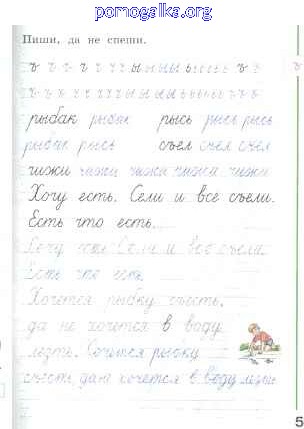 pomogalka.org
Пиши, да не спеши.
ъ ъ ъ ъ ъ ы ы ы ы ь ь ъ ъ
рыбак рыбак рысь рысь рысь
рыбак рысь съел съел съел
чижи чижи чижи чижи чижи
Хочу есть. Сели и все съели.
Есть что есть.
Хочу есть Сели и все съели
Есть что есть.
Хочется рыбку съесть,
да не хочется в воду
лезть. Хочется рыбку
съесть, да не хочется в воду лезть
5